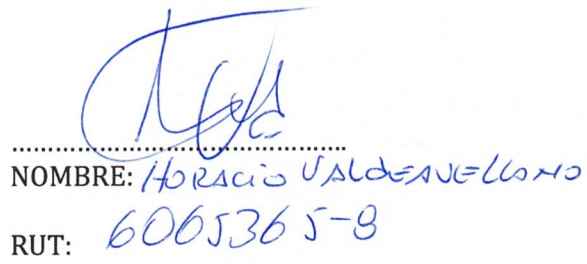 NOMBRE: HORACIO VALDEAVELLANO
RUT: 6065365-8